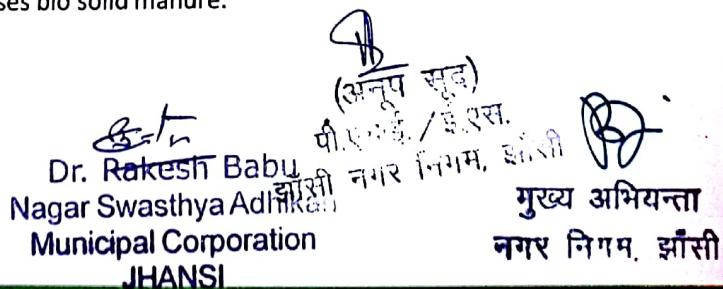 ses bio solid manure.
(अनूप सूद)
पी.एम.ई. / ई.एस.
झाँसी नगर निगम, झाँसी
Dr. Rakesh Babu
Nagar Swasthya Adhikari
Municipal Corporation
JHANSI
मुख्य अभियन्ता
नगर निगम, झाँसी